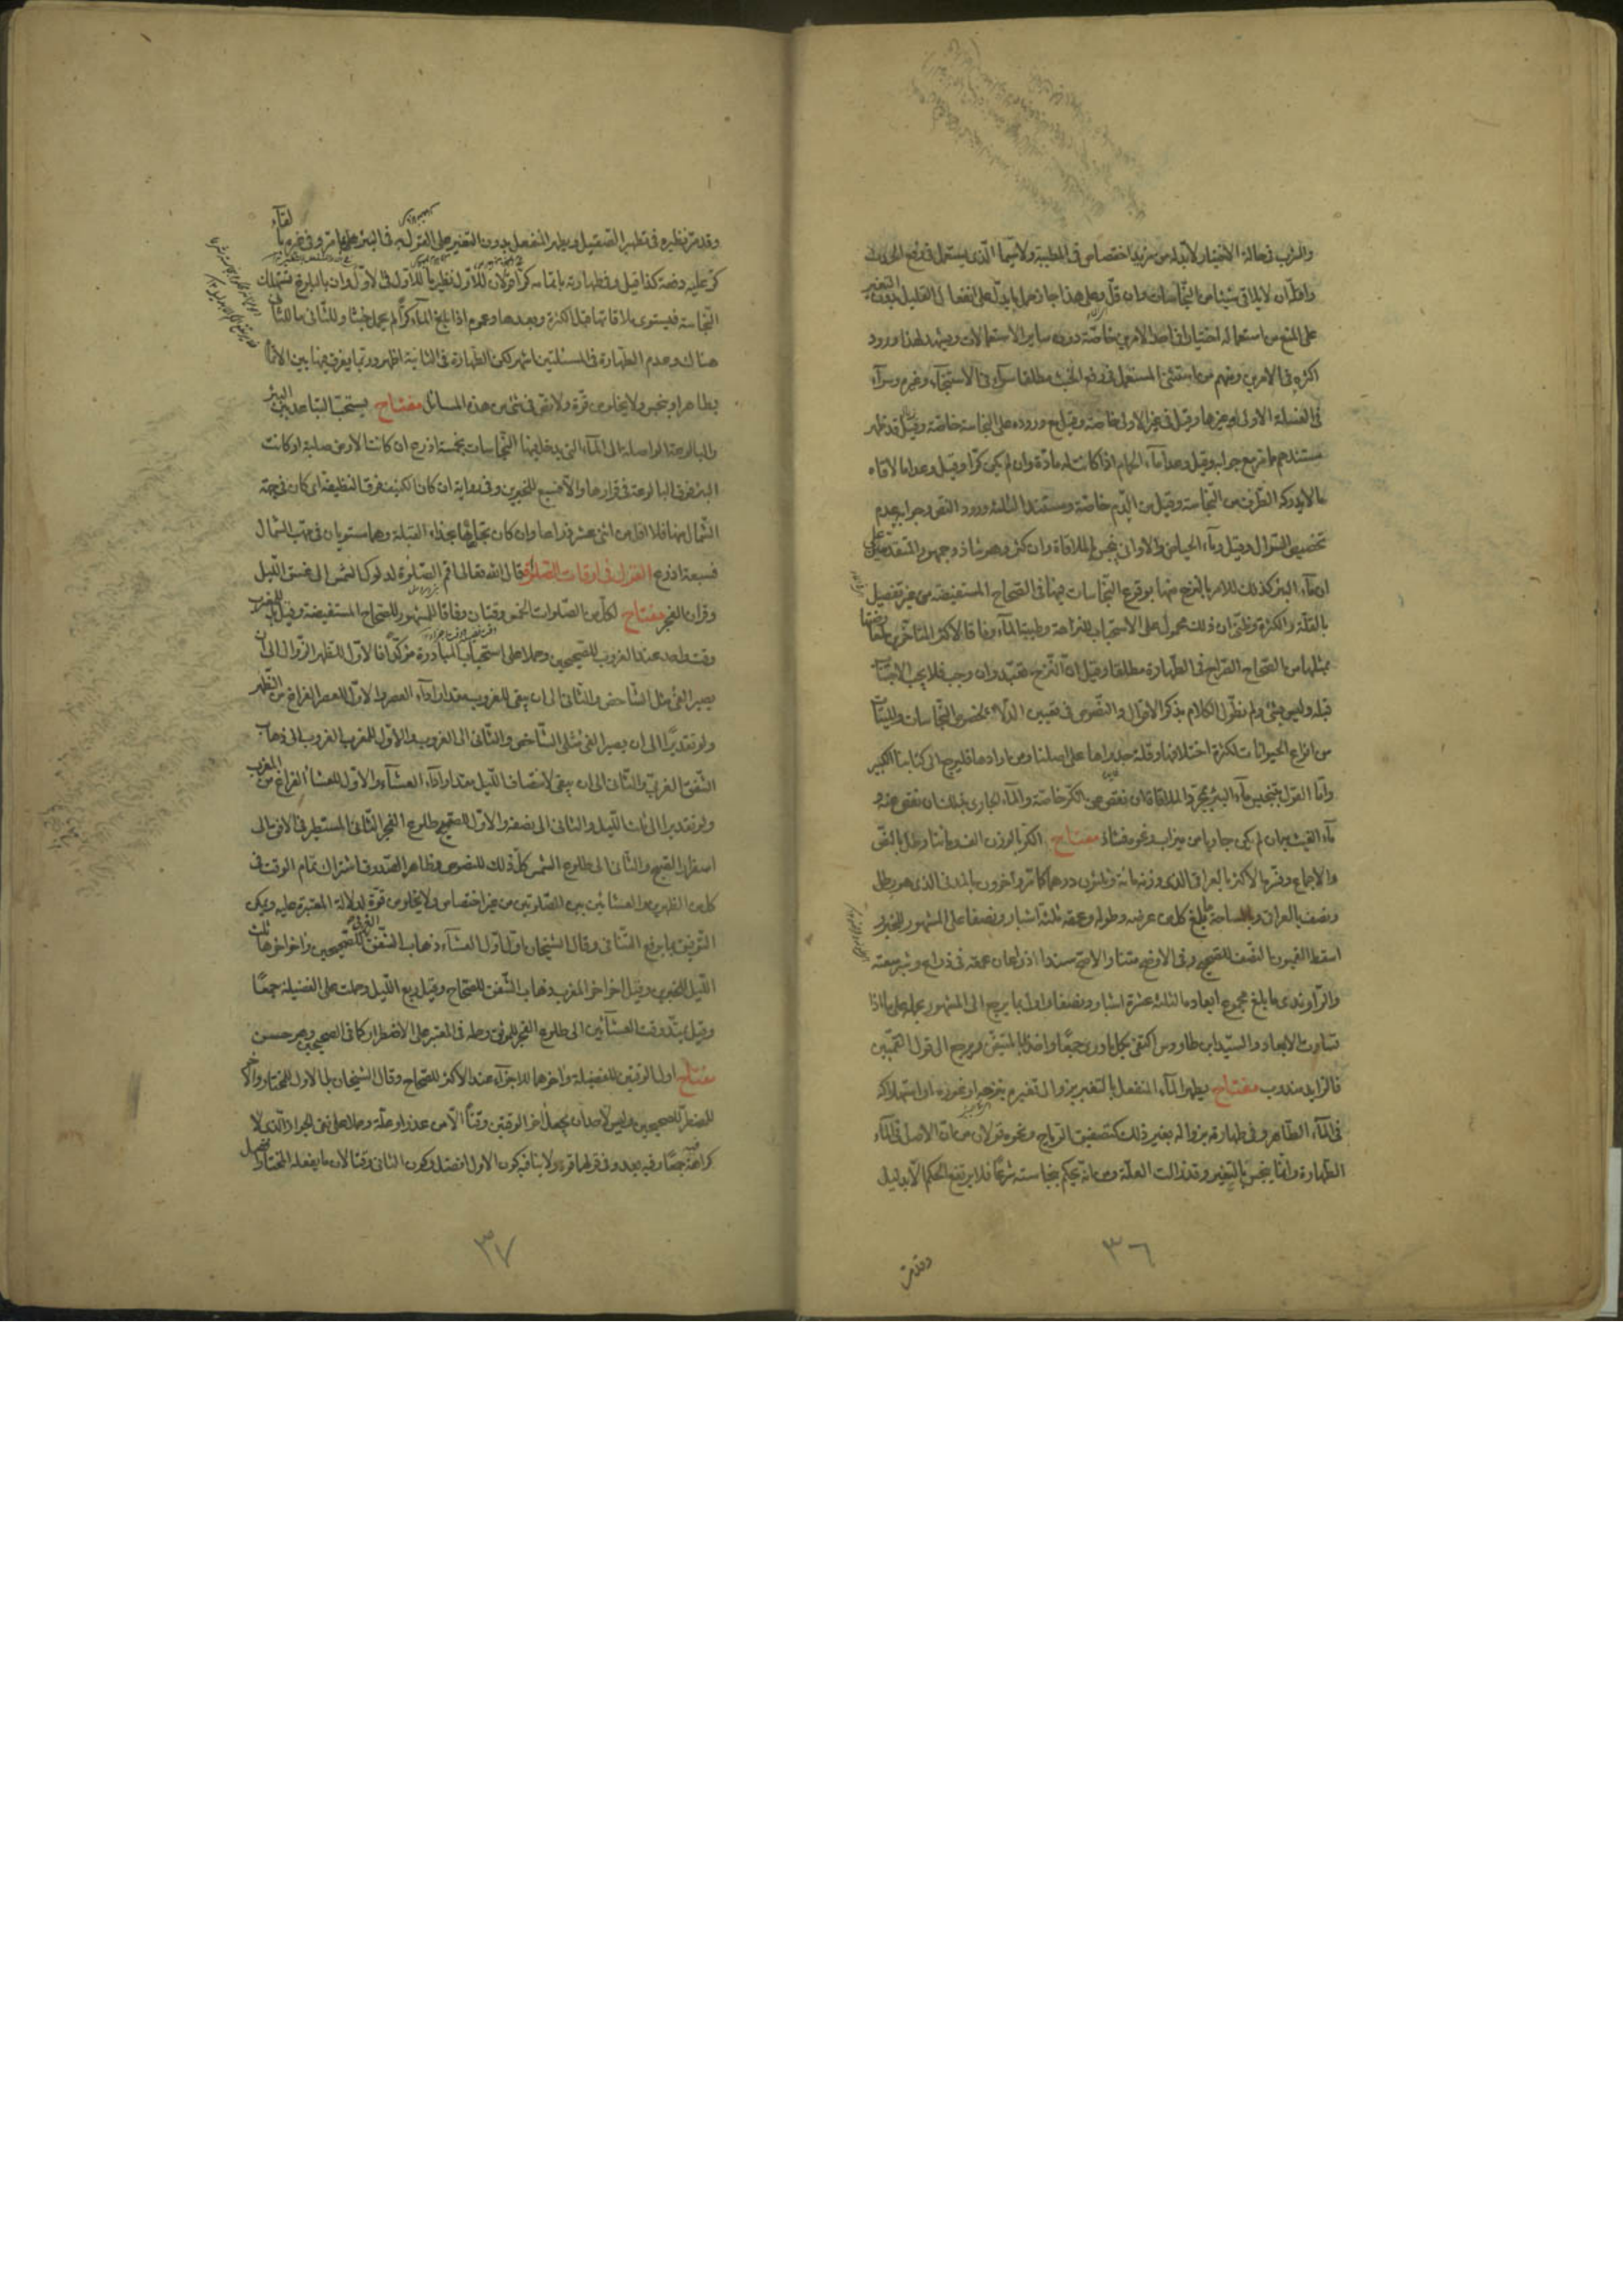 والشرب في حالة الاختيار لابد له من مزيد اختصاص في الطيبة ولا سيما الذي يستعمل في رفع الحدث
واقله ان لا يلاقي شيئا من النجاسات وان قل وعلى هذا جاز حمل ما يدل على انفعال القليل بدون التغير
على المنع من استعماله اختيارا في احد الامرين خاصة دون ساير الاستعمالات ويشهد لهذا ورود
اكثره في الامرين ومنهم من استثنى المستعمل في رفع الخبث مطلقا سواء في الاستنجاء وغيره وسواء
في الغسلة الاولى او غيرها وقيل في غير الاولى خاصة وقيل مع وروده على النجاسة خاصة وقد ظهر
مستندهم مما مر مع جوابه وقيل وعدا ماء الحمام اذا كانت له مادة وان لم يكن كرا وقيل وعدا ما لاقاه
ما لا يدركه الطرف من النجاسة وقيل من الدم خاصة ومستند الثلثة ورود النص وجوابه عدم
تخصيص السؤال وقيل وماء الحياض والاواني ينجس بالملاقاة وان كثر وهو شاذ وجمهور المتقدمين على
ان ماء البئر كذلك للامر بالنزح منها بوقوع النجاسات فيها في الصحاح المستفيضة من غير تفصيل
بالقلة والكثرة وظني ان ذلك محمول على الاستحباب للنزاهة وطيبة الماء وفاقا لاكثر المتاخرين لمعارضتها
بمثلها من الصحاح الصراح في الطهارة مطلقا وقيل ان النزح تعبد وان وجب فلا يجب الاجتناب
قبله وليس بشئ ولم نطول الكلام بذكر الاقوال والنصوص في تعيين الدلاء بخصوص النجاسات والميتات
من انواع الحيوانات لكثرة اختلافها وقلة جدواها على اصلنا ومن ارادها فليرجع الى كتابنا الكبير
واما القول بتنجيس ماء البئر بمجرد الملاقاة ان نقص عن الكر خاصة والماء الجاري بذلك ان نقص عنه و
ماء الغيث به ان لم يكن جاريا من ميزاب ونحوه فشاذ مفتاح الكر بالوزن الف ومائتا رطل بالنص
والاجماع وفسرها الاكثر بالعراقي الذي وزنه مائة وثلثون درهما كما مر وآخرون بالمدني الذي هو رطل
ونصف بالعراقي وبالمساحة ما بلغ كل من عرضه وطوله وعمقه ثلثة اشبار ونصفا على المشهور للخبر و
اسقط القميون النصف للصحيح وفي الاوضح متنا والاصح سندا ذراعان عمقه في ذراع وشبر سعته
والراوندي ما بلغ مجموع ابعاده الثلثة عشرة اشبار ونصفا واول بما يرجع الى المشهور بحمله على ما اذا
تساوت الابعاد والسيد ابن طاووس اكتفى بكل ما روي جمعا واخذا بالمتيقن ومرجعه الى قول القميين
فالزايد مندوب مفتاح يطهر الماء المنفعل بالتغير بزوال تغيره بنزحه او نحوه او استهلاكه
في الماء الطاهر وفي طهارته بزواله بغير ذلك كتصفيق الرياح ونحوه قولان من ان الاصل في الماء
الطهارة وانما ينجس بالتغير وقد زالت العلة ومن انه يحكم بنجاسته شرعا فلا يرتفع الحكم الا بدليل
٣٦
وقد مر
وقد مر نظيره في تطهير الصقيل ويطهر المنفعل بدون التغير على القول به في البئر على ما مر وفي غيره بالقاء
كر عليه دفعة كذا قيل وفي طهارته باتمامه كرا قولان للاول نظير ما للاول في الاول وان بالبلوغ تستهلك
النجاسة فيستوي ملاقاتها قبل الكثرة وبعدها وعموم اذا بلغ الماء كرا لم يحمل خبثا وللثاني ما للثاني
هناك وعدم الطهارة في المسئلتين اشهر لكن الطهارة في الثانية اظهر وربما يفرق فيها بين الاتمام
بطاهر او بنجس ولا يخلو من قوة ولا نص في شئ من هذه المسائل مفتاح يستحب التباعد بين البئر
والبالوعة الواصلة الى الماء التي يدخلها النجاسات بخمسة اذرع ان كانت الارض صلبة او كانت
البئر فوق البالوعة في قرارها والا فسبع للخبرين وفي رواية ان كان الكنيف فوق النظيفة اي كان في جهة
الشمال منها فلا اقل من اثني عشر ذراعا وان كان تجاهها بحذاء القبلة وهما مستويان في مهب الشمال
فسبعة اذرع القول في اوقات الصلوة قال الله تعالى اقم الصلوة لدلوك الشمس الى غسق الليل
وقران الفجر مفتاح لكل من الصلوات الخمس وقتان وفاقا للمشهور للصحاح المستفيضة وقيل بل للمغرب
وقت واحد عند الغروب للصحيحين وحملا على استحباب المبادرة مؤكدا فالاول للظهر الزوال الى ان
يصير الفئ مثل الشاخص والثاني الى ان يبقى للغروب مقدار اداء العصر والاول للعصر الفراغ من الظهر
ولو تقديرا الى ان يصير الفئ مثلي الشاخص والثاني الى الغروب والاول للمغرب الغروب الى ذهاب
الشفق الغربي والثاني الى ان يبقى لانتصاف الليل مقدار اداء العشاء والاول للعشاء الفراغ من المغرب
ولو تقديرا الى ثلث الليل والثاني الى نصفه والاول للصبح طلوع الفجر الثاني المستطير في الافق الى
اسفرار الصبح والثاني الى طلوع الشمس كل ذلك للنصوص وظاهر الصدوق اشتراك تمام الوقت في
كل من الظهرين والعشائين بين الصلوتين من غير اختصاص ولا يخلو من قوة لدلالة المعتبرة عليه ويمكن
التوفيق بما يرفع التنافي وقال الشيخان اول وقت العشاء ذهاب الشفق الغربي للصحيحين واخر اخرها ثلث
الليل للخبرين وقيل اخر اخر المغرب ذهاب الشفق للصحاح وقيل ربع الليل وحملت على الفضيلة جمعا
وقيل يمتد وقت العشائين الى طلوع الفجر للموثق وحمله في المعتبر على الاضطرار كما في الصحيحين وهو حسن
مفتاح اول الوقتين للفضيلة واخرهما للاجزاء عند الاكثر للصحاح وقال الشيخان بل الاول للمختار والاخر
للمضطر للصحيحين وليس لاحد ان يجعل اخر الوقتين وقتا الا من عذر او علة وحملا على نفي الجواز الذي لا
كراهة فيه جمعا وفيه بعد وفي قولهما قوة ولا ينافيه كون الاول افضل وكون الثاني وقتا لان ما يفعله المختار افضل
٣٧